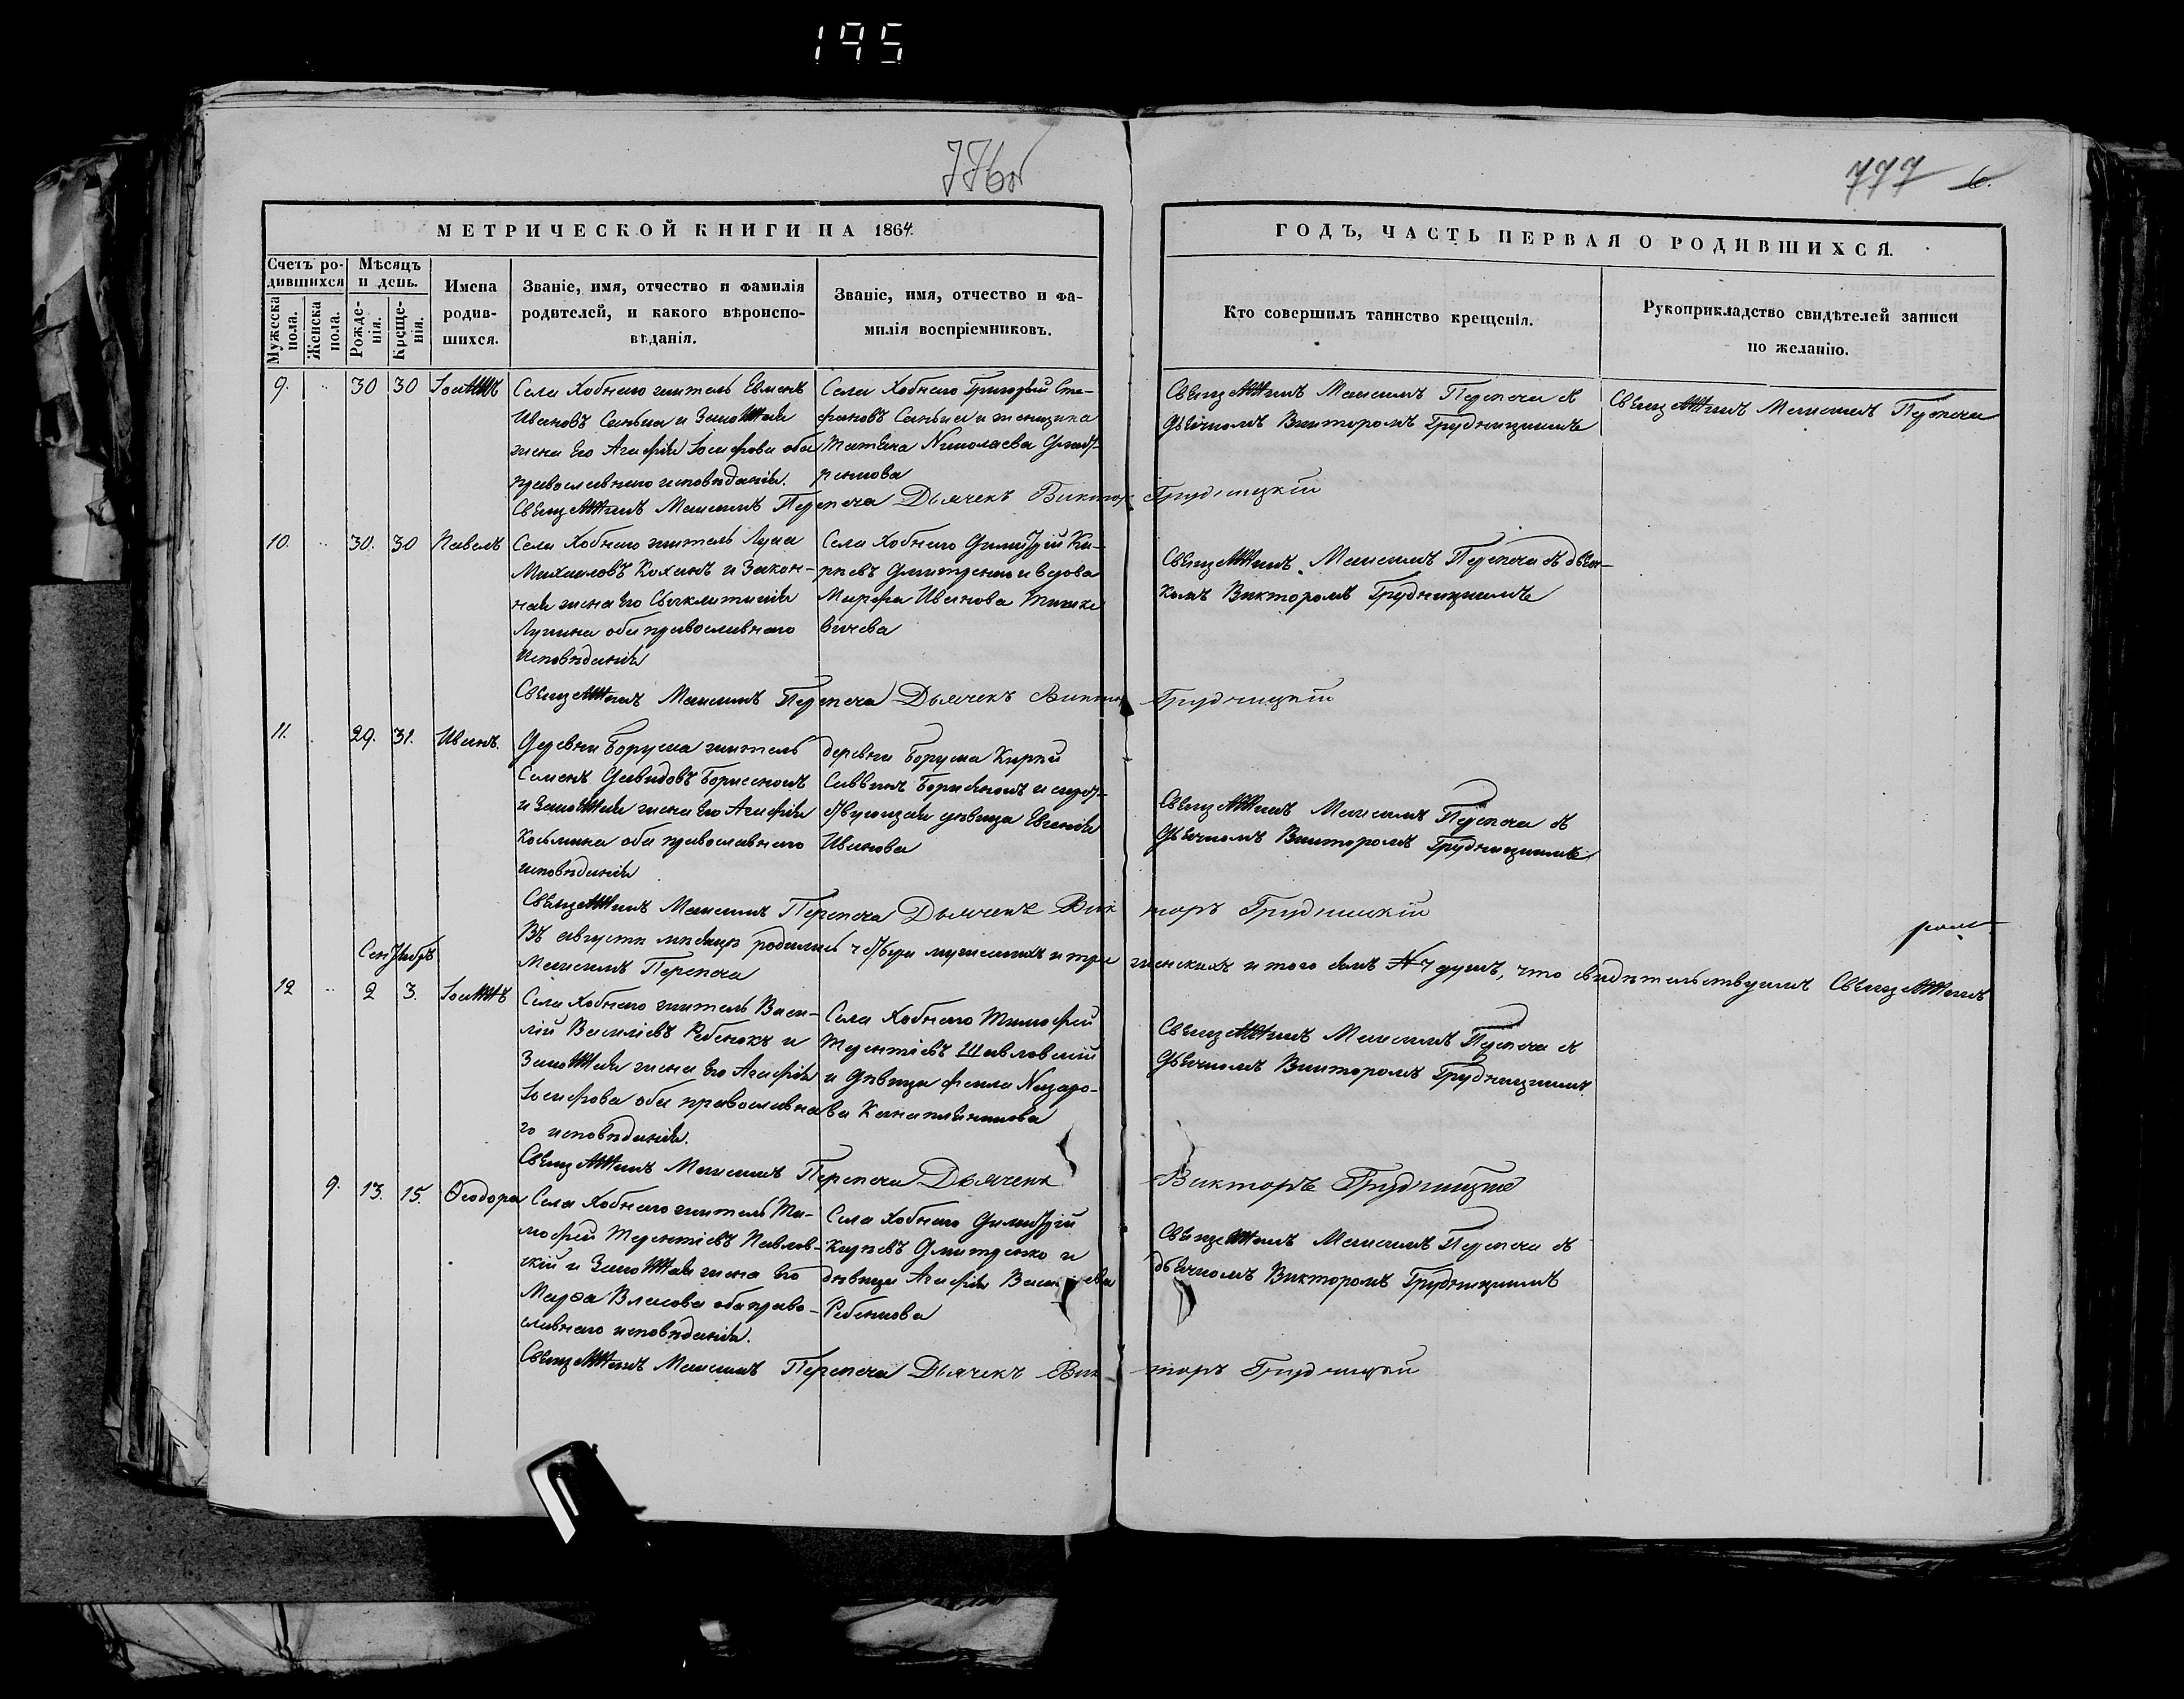 195
776об
777 6.
МЕТРИЧЕСКОЙ КНИГИ НА 1864.
ГОДЪ, ЧАСТЬ ПЕРВАЯ О РОДИВШИХСЯ.
Счетъ ро-
дившихся
Мужеска
пола.
Женска
пола.
Мѣсяцъ
и день.
Рожде-
нія.
Креще-
нія.
Имена
родив-
шихся.
Званіе, имя, отчество и фамилія
родителей, и какого вѣроиспо-
вѣданія.
Званіе, имя, отчество и фа-
милія воспріемниковъ.
Кто совершилъ таинство крещенія.
Рукоприкладство свидѣтелей записи
по желанію.
9. .. 30 30 Іоаннъ
Села Хобнаго житель Евменъ
Ивановъ и Законная
жена Его Агафія Іосифова оба
православнаго исповѣданія.
Села Хобнаго Григорій Сте-
фановъ и женщина
Татьяна Николаева Дмит-
ренкова
Священникъ Максимъ Перепеча съ
Дьячкомъ Викторомъ Грудницкимъ
Священникъ Максимъ Перепеча
Священникъ Максимъ Перепеча Дьячекъ Викторъ Грудницкій
10. .. 30. 30 Павелъ
Села Хобнаго житель Лука
Михаиловъ Коханъ и Закон-
ная жена Его Свѣклитикія
Лукина оба православнаго
исповѣданія
Села Хобнаго Димитрій Ки-
рпевъ Дмитренко и вдова
Марфа Иванова
Священникъ Максимъ Перепеча съ дьяч-
комъ Викторомъ Грудницкимъ
Священникъ Максимъ Перепеча Дьячекъ Викторъ Грудницкій
11. 29. 31. Иванъ.
Деревни Боруска житель
Семенъ Давидовъ Борисенокъ
и Законная жена Его Агафія
Косьмина оба православнаго
исповѣданія
деревни Боруска Кирпій
Саввинъ и
дѣвица Евгенія
Иванова
Священникъ Максимъ Перепеча съ
Дьячкомъ Викторомъ Грудницкимъ
Священникъ Максимъ Перепеча Дьячекъ Викторъ Грудницкій
Въ августѣ мѣсяцѣ родились четыри мужескихъ и три женскихъ и того семъ душъ, что свидѣтельствуемъ Священникъ
Максимъ Перепеча
Сентябрь
12 .. 2 3. Іоаннъ
Села Хобнаго житель Васи-
лій Василіевъ Ребенокъ и
Законная жена Его Агафія
Іосифова оба православна-
го исповѣданія.
Села Хобнаго Тимофей
Терентіевъ Павловскій
и дѣвица Фекла Назаро-
ва
Священникъ Максимъ Перепеча съ
Дьячкомъ Викторомъ Грудницкимъ.
Священникъ Максимъ Перепеча Дьячекъ Викторъ Грудницкій
9. 13. 15. Ѳеодора
Села Хобнаго житель Ти-
мофей Терентіевъ Павлов-
скій и Законная жена Его
Марѳа Власова оба право-
славнаго исповѣданія.
Села Хобнаго Димитрій
Кирпевъ Дмитренко и
дѣвица Агафія Васильева
Ребенкова
Священникъ Максимъ Перепеча съ
дьячкомъ Викторомъ Грудницкимъ
Священникъ Максимъ Перепеча Дьячекъ Викторъ Грудницкій